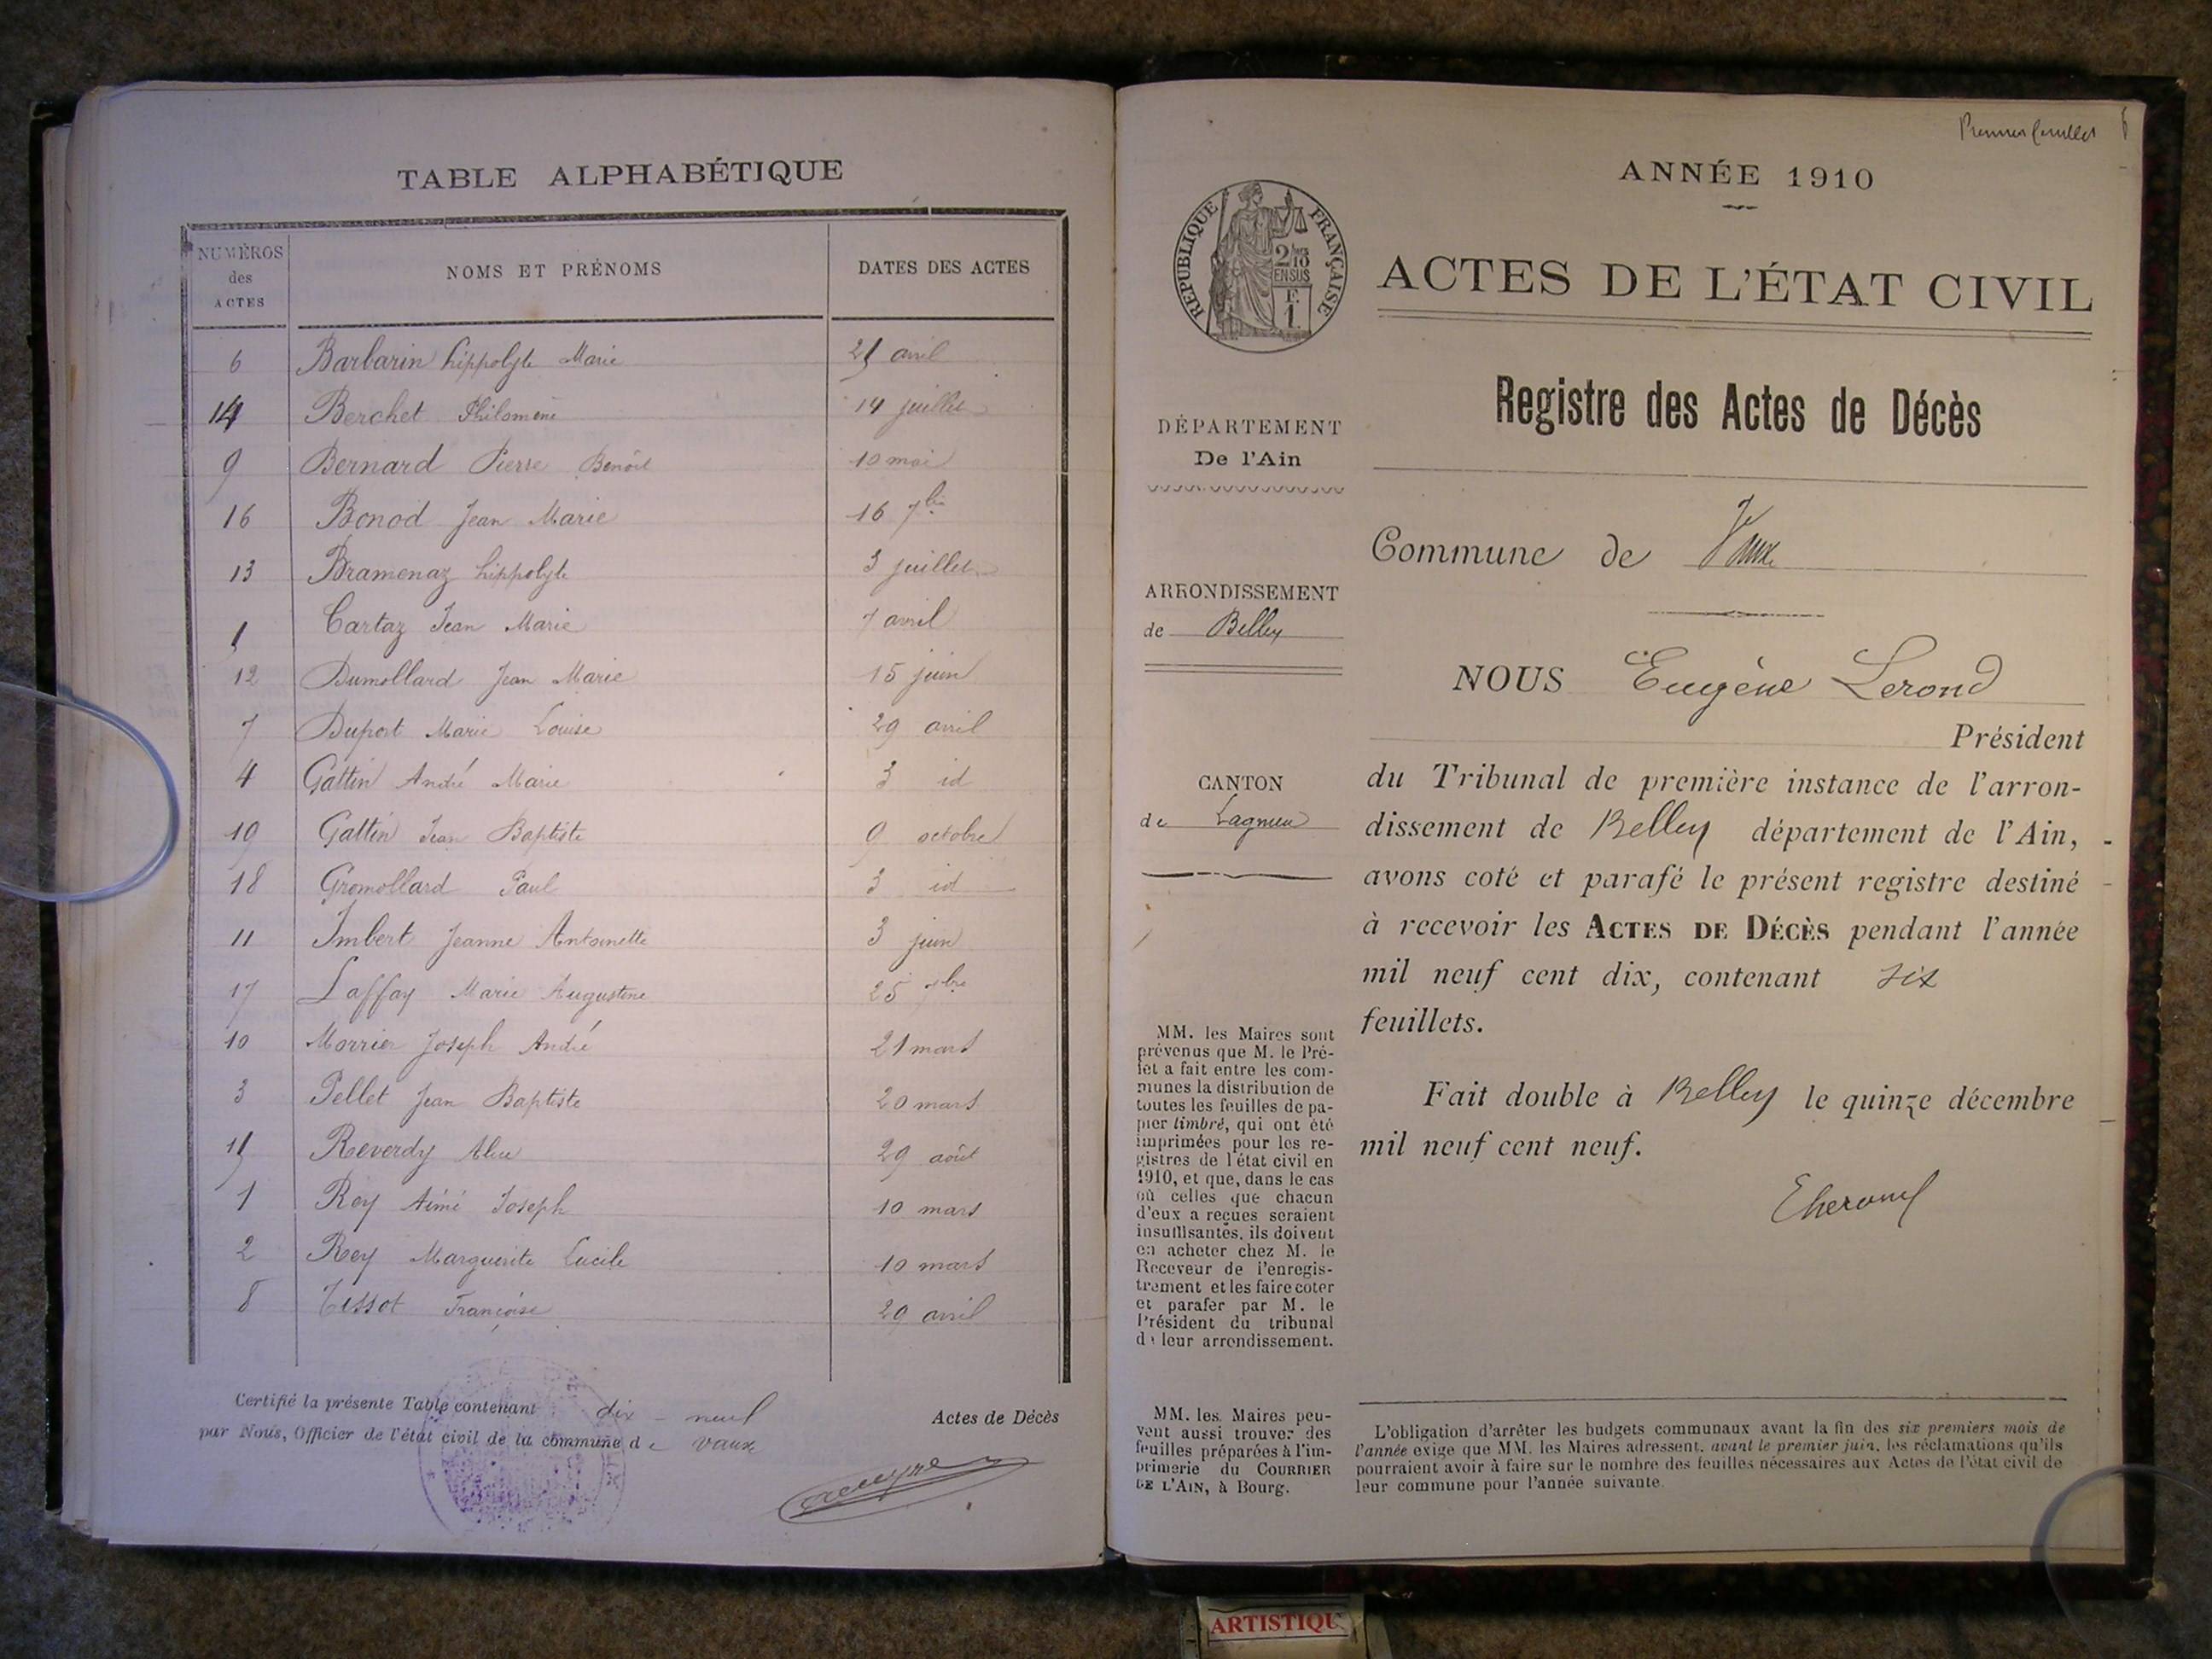 TABLE ALPHABÉTIQUE
NUMÉROS des ACTES NOMS ET PRÉNOMS DATES DES ACTES
6 Barbarin hippolyte Marie 21 avril
14 Berchet Philomène 14 juillet
9 Bernard Pierre Benoit 10 mai
16 Bonod Jean Marie 16 7bre
13 Bramenaz hippolyte 3 juillet
Cartaz Jean Marie 7 avril
12 Dumollard Jean Marie 15 juin
7 Duport Marie Louise 29 avril
4 Gattin André Marie 3 id
19 Gattin Jean Baptiste 9 octobre
18 Gromollard Paul 3 id
11 Imbert Jeanne Antoinette 3 juin
17 Laffay Marie Augustine 25 7bre
10 Morrier Joseph André 21 mars
3 Pellet Jean Baptiste 20 mars
Reverdy 29 août
1 Rey Aimé Joseph 10 mars
2 Rey Marguerite Lucile 10 mars
8 Tissot Françoise 29 avril
Certifié la présente Table contenant dix-neuf Actes de Décès
par Nous, Officier de l'état civil de la commune de vaux
Premier feuillet
ANNÉE 1910
RÉPUBLIQUE FRANÇAISE
2/10
EN SUS
1 F.
ACTES DE L'ÉTAT CIVIL
Registre des Actes de Décès
DÉPARTEMENT
De l'Ain
ARRONDISSEMENT
de Belley
CANTON
de Lagnieu
Commune de Vaux
NOUS Eugène Lerond
Président
du Tribunal de première instance de l'arron-
dissement de Belley département de l'Ain,
avons coté et parafé le présent registre destiné
à recevoir les ACTES DE DÉCÈS pendant l'année
mil neuf cent dix, contenant six
feuillets.
Fait double à Belley le quinze décembre
mil neuf cent neuf.
MM. les Maires sont
prévenus que M. le Pré-
fet a fait entre les com-
munes la distribution de
toutes les feuilles de pa-
pier timbré, qui ont été
imprimées pour les re-
gistres de l'état civil en
1910, et que, dans le cas
où celles que chacun
d'eux a reçues seraient
insuffisantes, ils doivent
en acheter chez M. le
Receveur de l'enregis-
trement et les faire coter
et parafer par M. le
Président du tribunal
de leur arrondissement.
MM. les Maires peu-
vent aussi trouver des
feuilles préparées à l'im-
primerie du COURRIER
DE L'AIN, à Bourg.
L'obligation d'arrêter les budgets communaux avant la fin des six premiers mois de
l'année exige que MM. les Maires adressent, avant le premier juin, les réclamations qu'ils
pourraient avoir à faire sur le nombre des feuilles nécessaires aux Actes de l'état civil de
leur commune pour l'année suivante.
ARTISTIQU